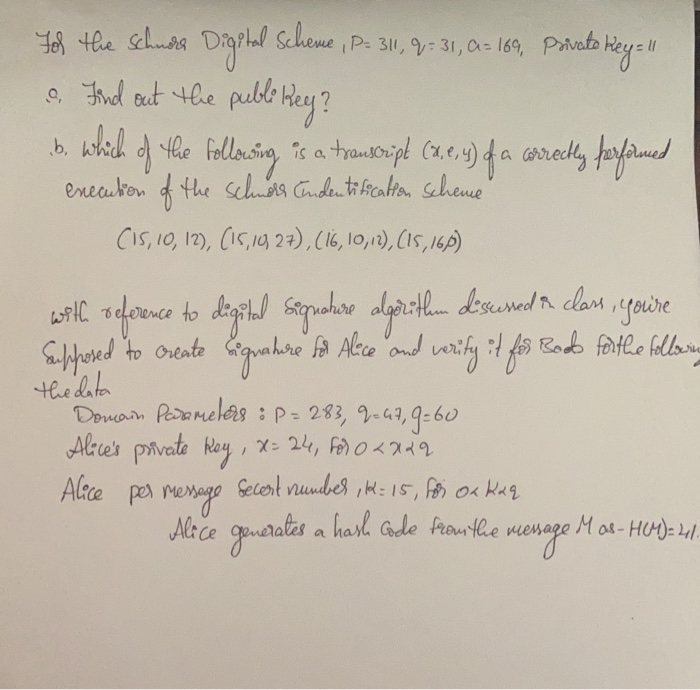 For the Schnorr Digital Scheme, P= 311, q= 31, a= 169, Private key= 11
a, Find out the publi key?
b. Which of the following is a transcript (x, e, y) of a correctly performed
execution of the Schnorr Endentification Scheme
(15, 10, 12), (15, 10, 27), (16, 10, 12), (15, 16,
with reference to digital signature algorithm discussed in class, you're
Supposed to create signature for Alice and verify it for Bob for the following
the data
Domain Parameters : P= 283, q=47, g=60
Alice's private key, x= 24, for 0<x<q
Alice per message secert number, K= 15, for 0<K<q
Alice generates a hash code from the message M as- H(M)= 41.